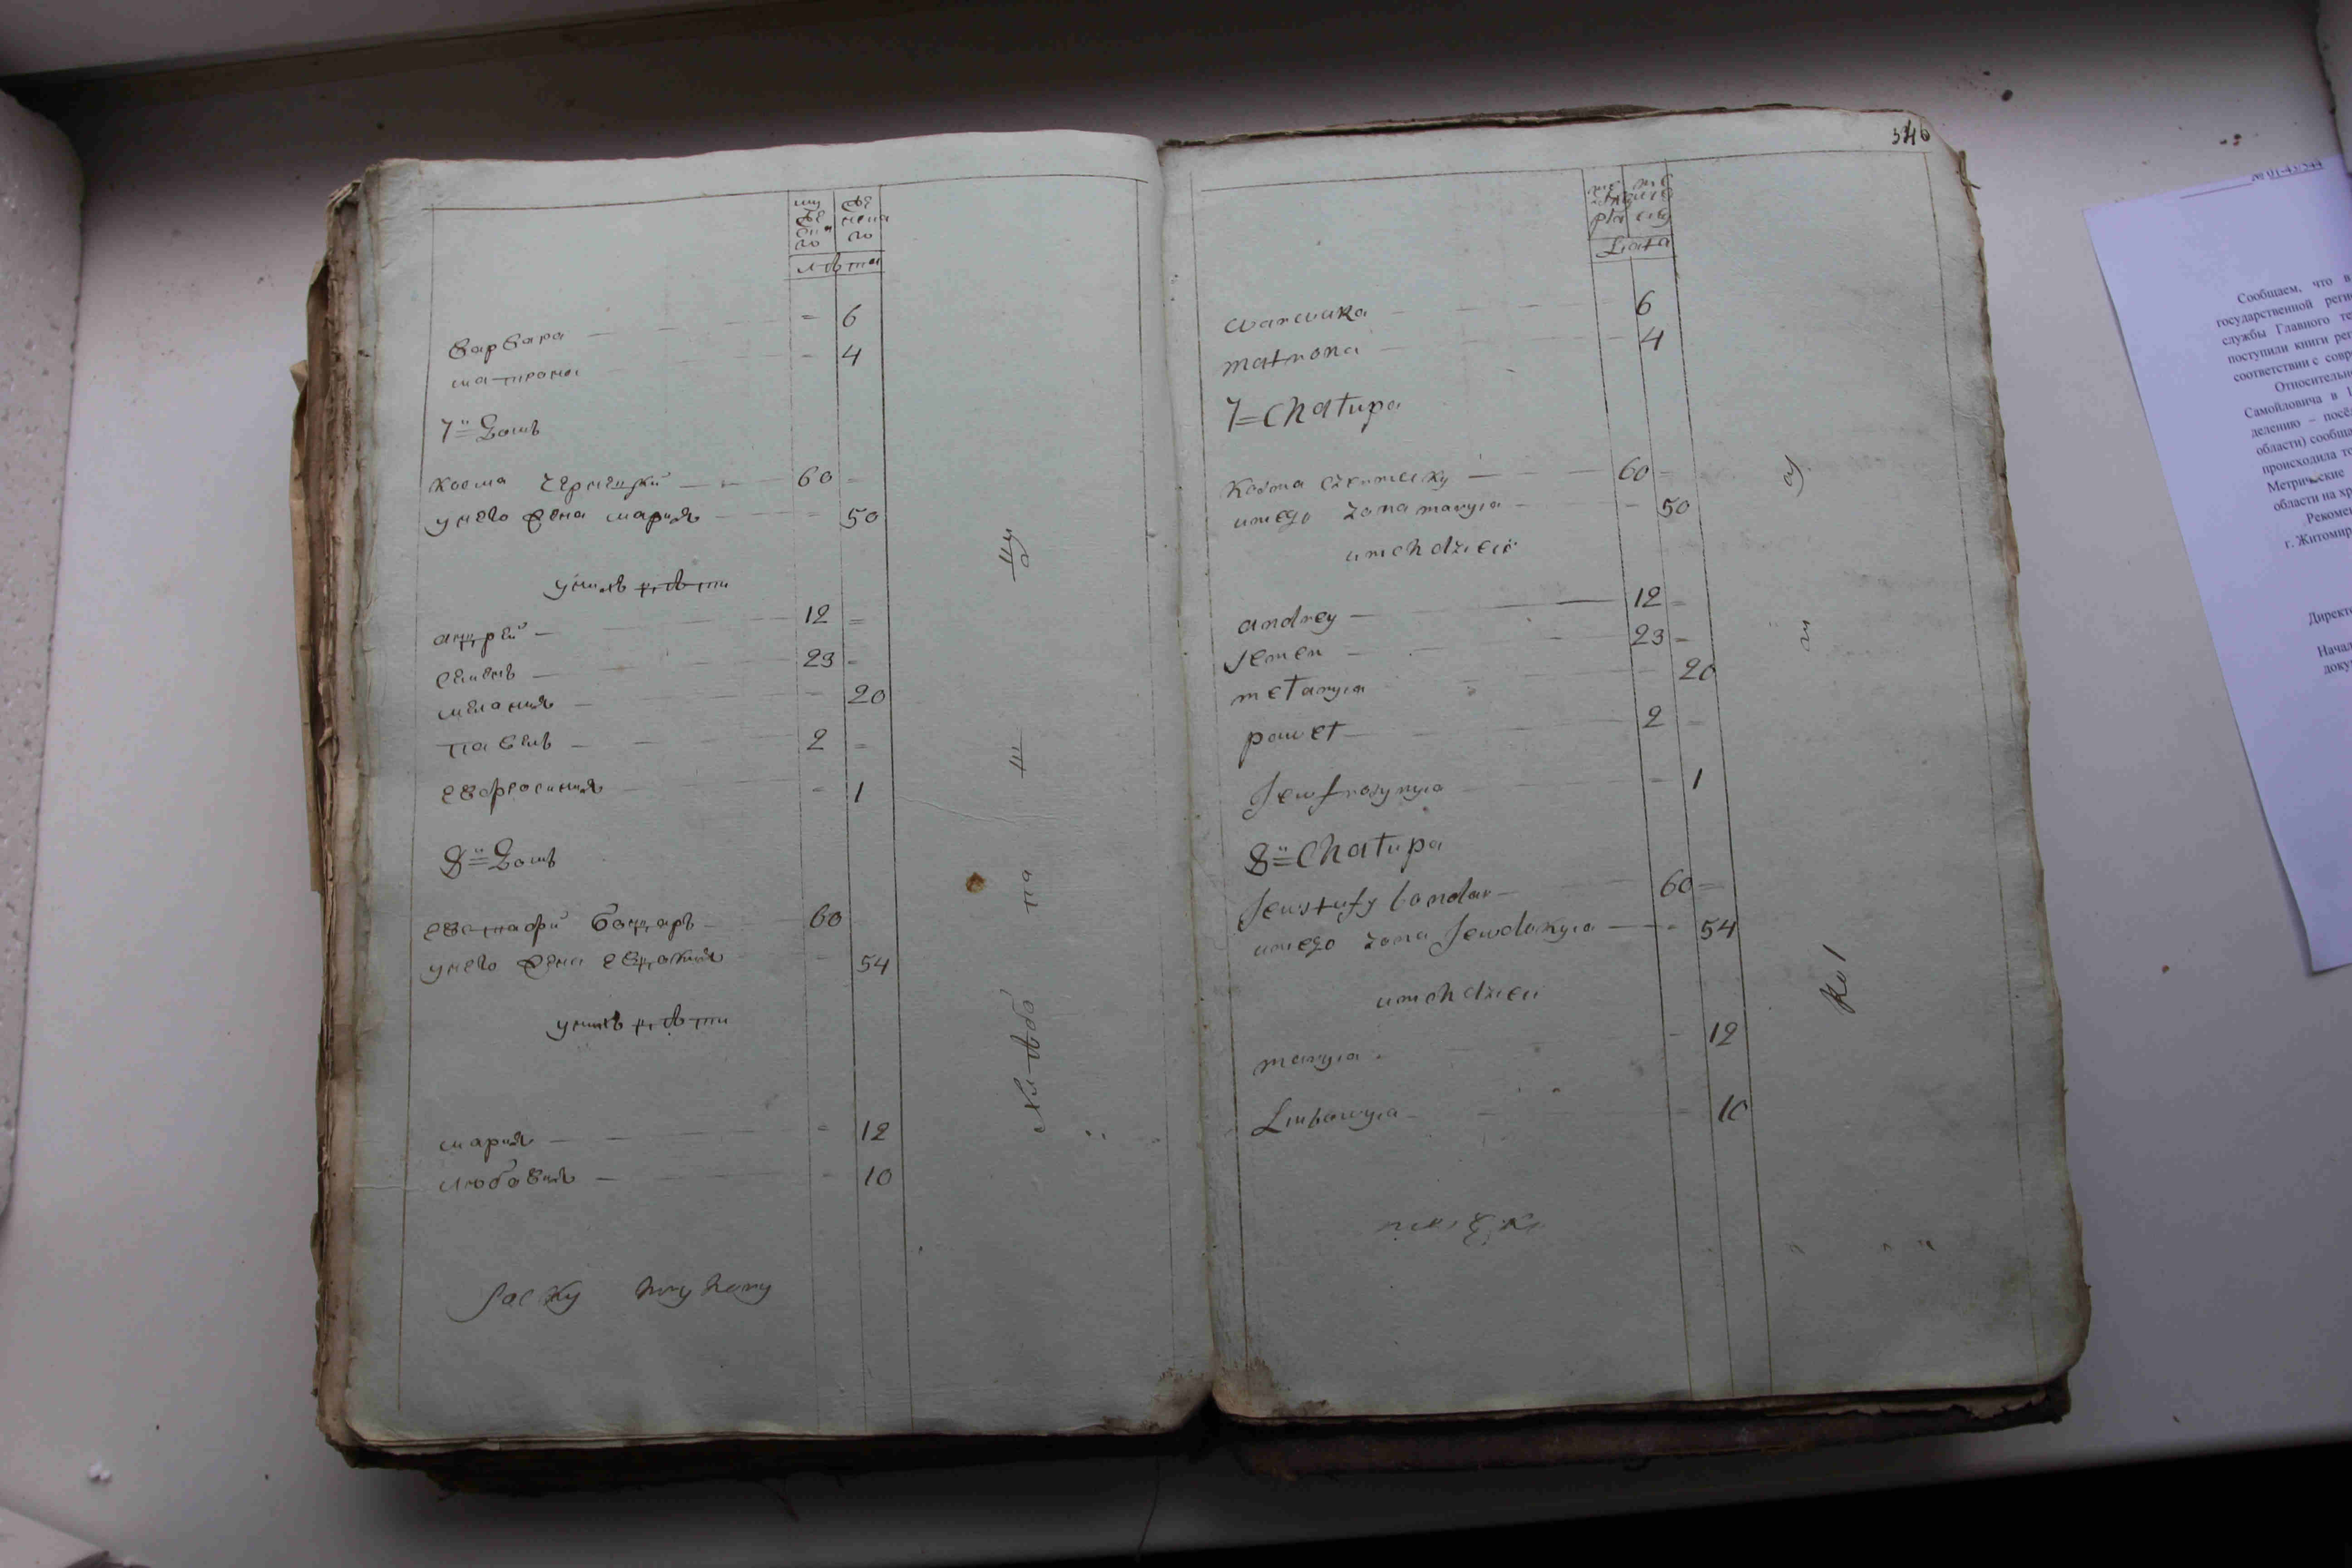 лѣта
варвара — 6
матрона — 4
7й = Домъ
косма чернецкий — 60 =
у него жена мария — 50
у нихъ дѣти
андрей — 12 =
семенъ — 23 =
мелания — 20
павелъ — 2 =
евфросиния — 1
8й = Домъ
евстафий бондаръ — 60
у него жена евдокия — 54
у нихъ дѣти
мария — = 12
любовия — 10
346
Liata
warwara 6
matrona — 4
7 = Chałupa
Kosma czerniecky — 60 =
unego zona maryia — 50
unich dzieci
andrey — 12 =
Semen — 23 =
mełanyia — 20
paweł — 2
Jewfrosynyia — 1
8 = Chałupa
Jewstafy bondar — 60 =
unego zona Jewdokyia — 54
unich dzieci
maryia — 12
Lubowyia — 10
Сообщаем, что в
государственной реги
службы Главного те
поступили книги рег
соответствии с совр
Относительно
Самойловича в
делению – посё
области) сообща
происходила то
Метрические
области на хр
Рекоме
г. Житомир
Директ
Начал
доку